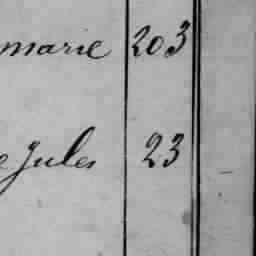 marie 203
e Jules 23